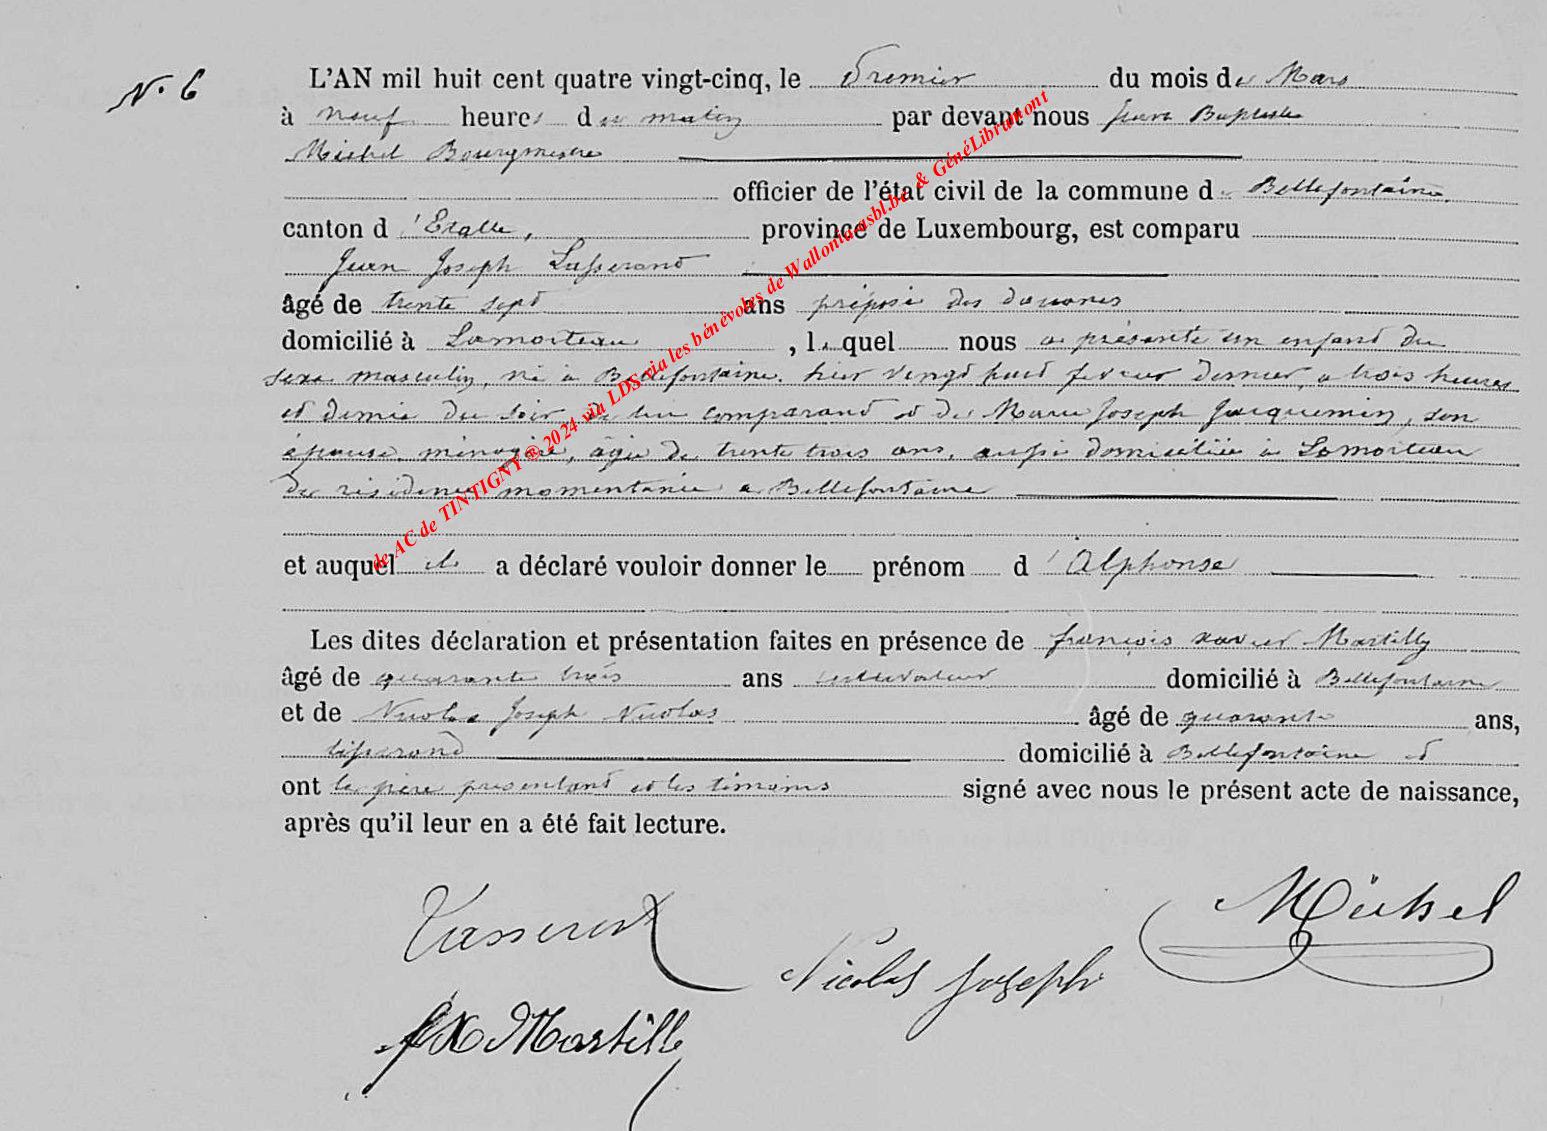 N. 6
L'AN mil huit cent quatre vingt-cinq, le Premier du mois de Mars
à neuf heures du matin par devant nous Jean Baptiste
Michel Bourgmestre
officier de l'état civil de la commune de Bellefontaine
canton d'Etalle, province de Luxembourg, est comparu
Jean Joseph Lasserand
âgé de trente sept ans préposé des douanes
domicilié à Lamorteau, lequel nous a présenté un enfant du
sexe masculin, né à Bellefontaine, hier vingt huit fevrier dernier, a trois heures
et demie du soir de lui comparant et de Marie Joseph Jacquemin, son
épouse, ménagère, âgée de trente trois ans, aussi domiciliée à Lamorteau
de résidence momentanée a Bellefontaine
et auquel il a déclaré vouloir donner le prénom d'Alphonse
Les dites déclaration et présentation faites en présence de françois xavier Martilly
âgé de quarante trois ans cultivateur domicilié à Bellefontaine
et de Nicolas Joseph Nicolas âgé de quarante ans,
tisserand domicilié à Bellefontaine et
ont le père présentant et les témoins signé avec nous le présent acte de naissance,
après qu'il leur en a été fait lecture.
de AC de TINTIGNY ® 2024 via LDS via les bénévoles de Wallonia asbl.be & GénéLibramont
Michel
Nicolas Joseph
fX Martilly